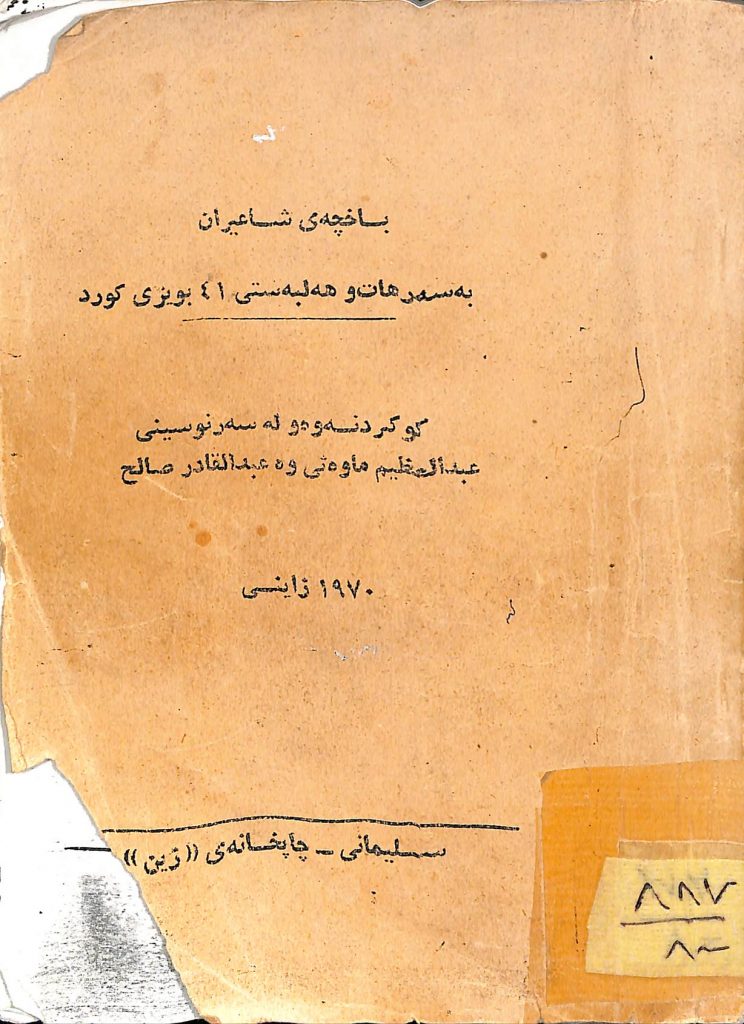 باخچەی شاعیران
بەسەرهات و هەلبەستی ٤١ بویزی کورد
کوکردنەوەو لە سەرنوسینی
عبدالعظیم ماوەتی وە عبدالقادر صالح
١٩٧٠ زاینی
سلیمانی ـ چاپخانەی ((ژین))
٨٨٧